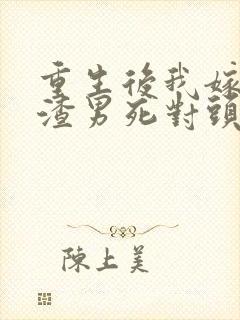 重生後我嫁
渣男死對頭
陳上美